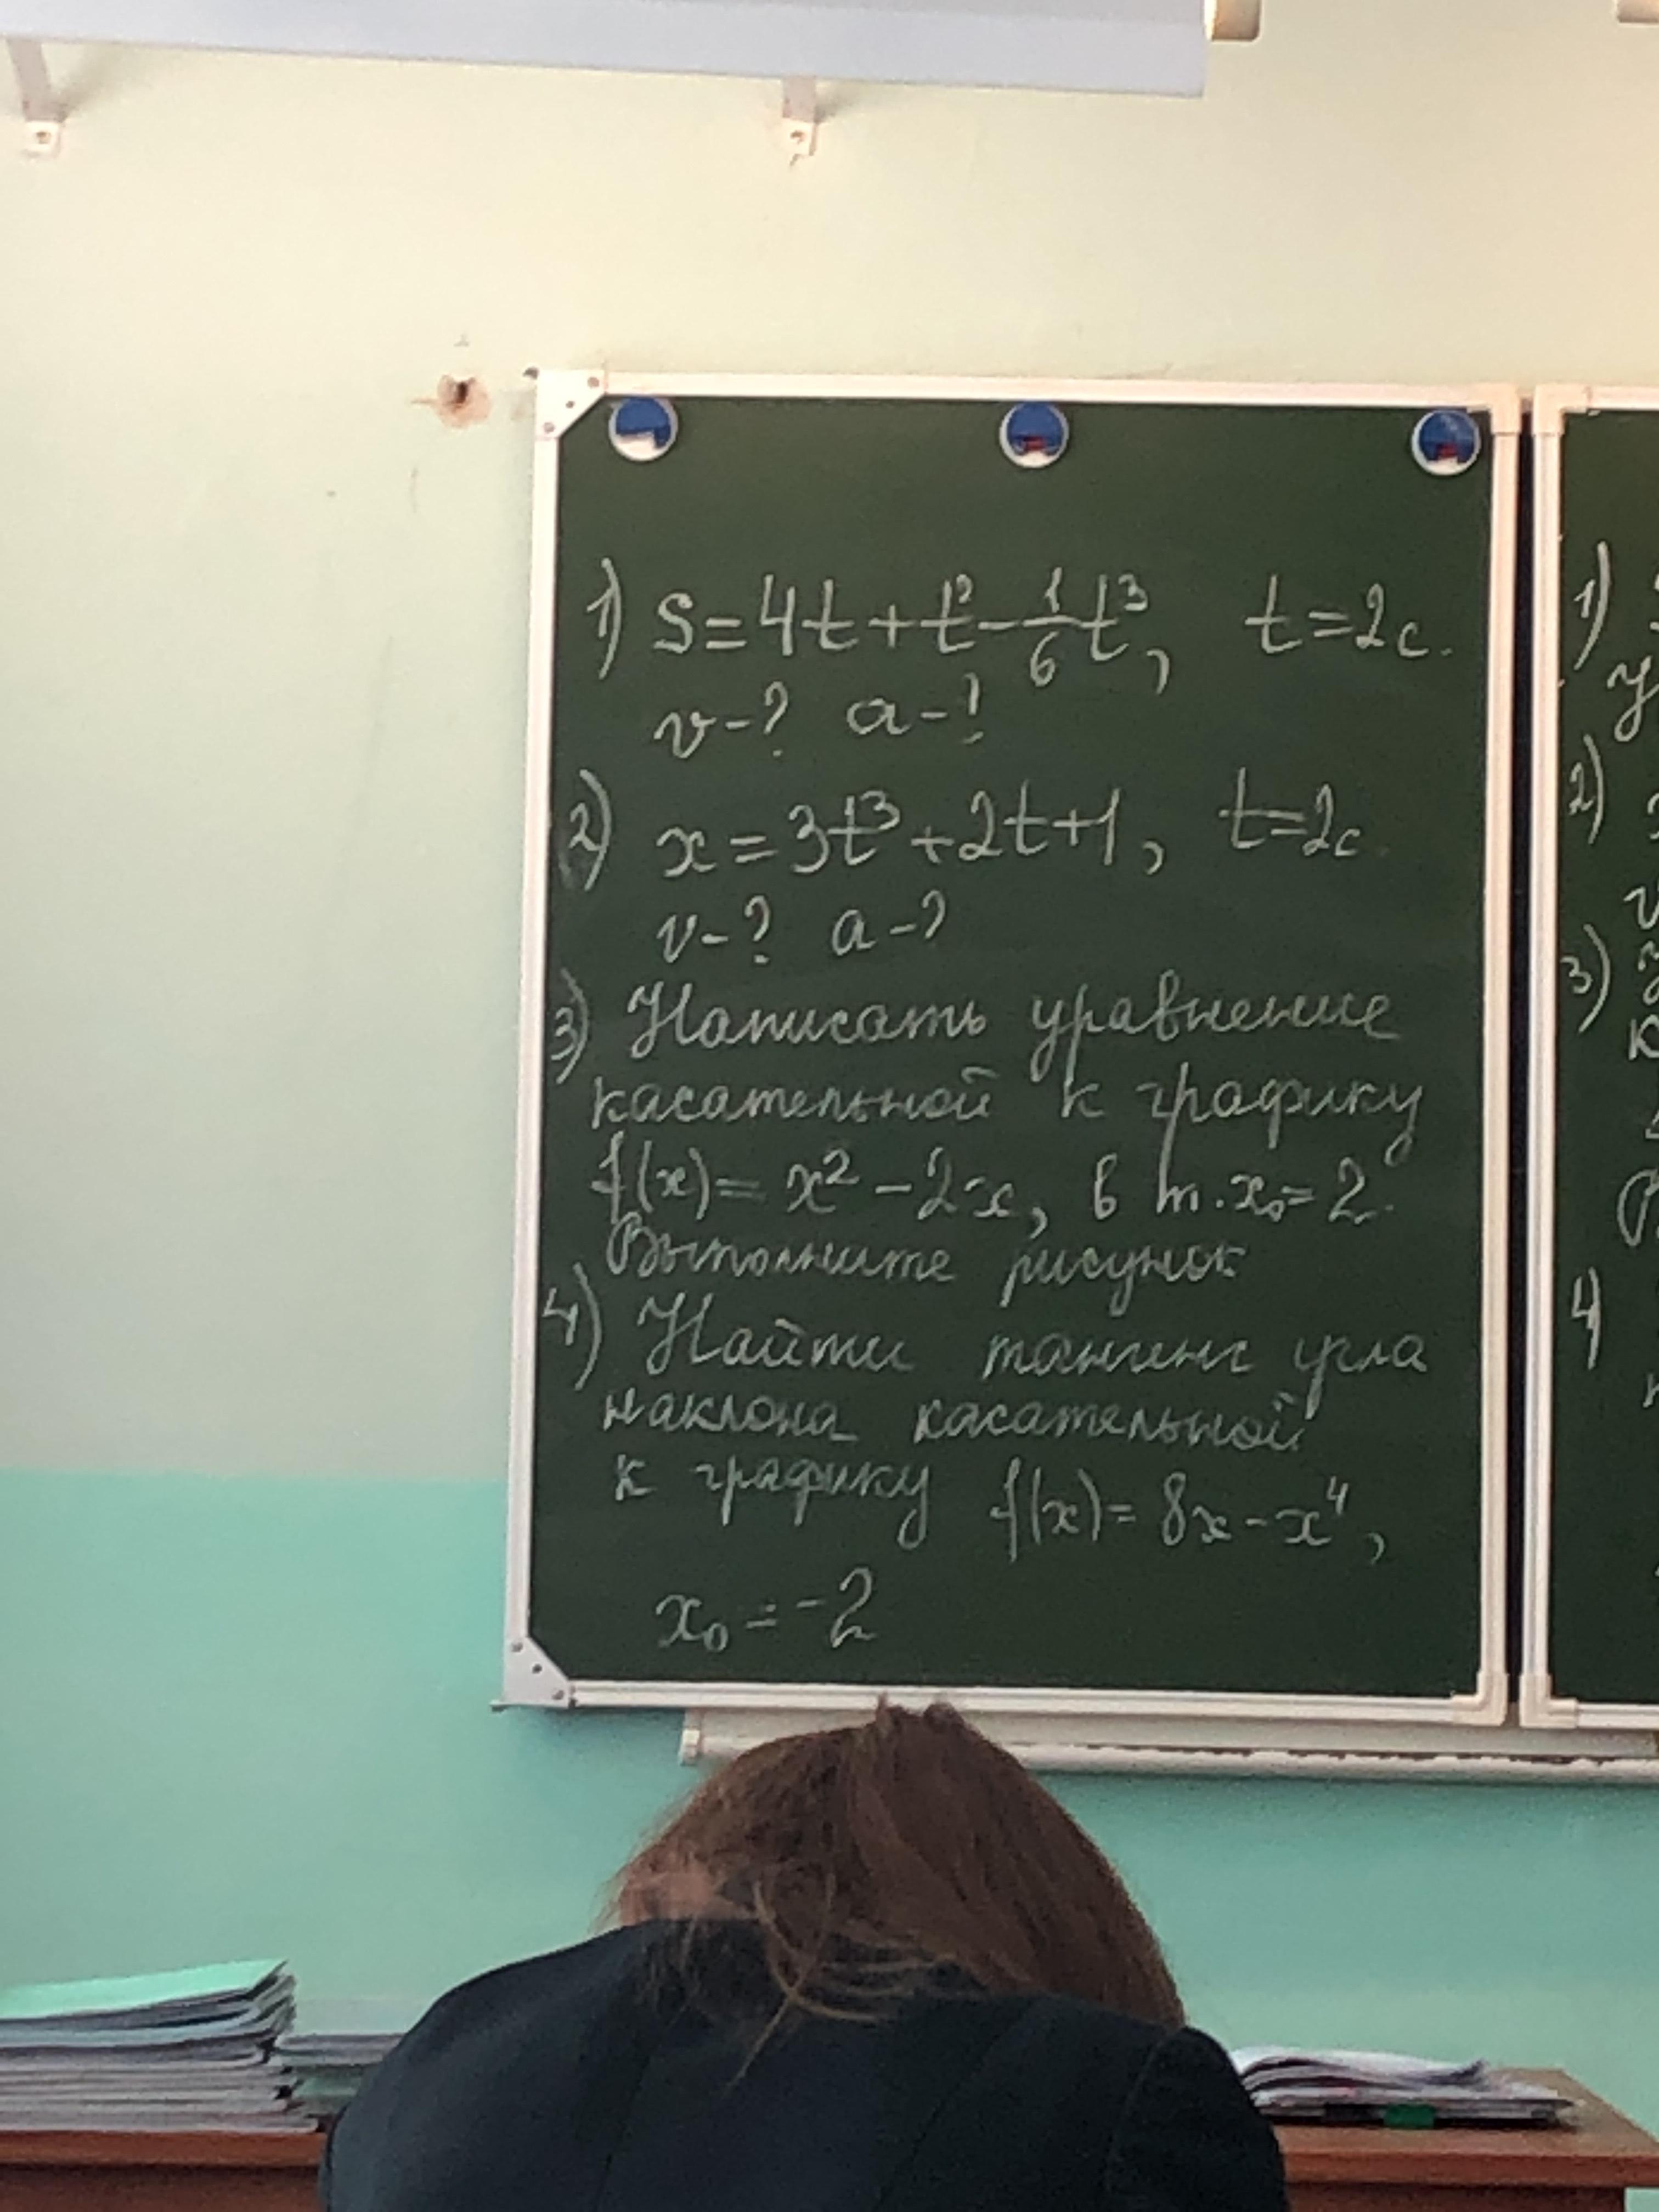 1) S=4t+t²-1/6t³, t=2с.
v-? a-?
2) x=3t³+2t+1, t=2с
v-? a-?
3) Написать уравнение
касательной к графику
f(x)=x²-2x, в т.x₀=2.
Выполните рисунок
4) Найти тангенс угла
наклона касательной
к графику f(x)=8x-x⁴,
x₀=-2
1)
у
2)
v
3)
к
4)